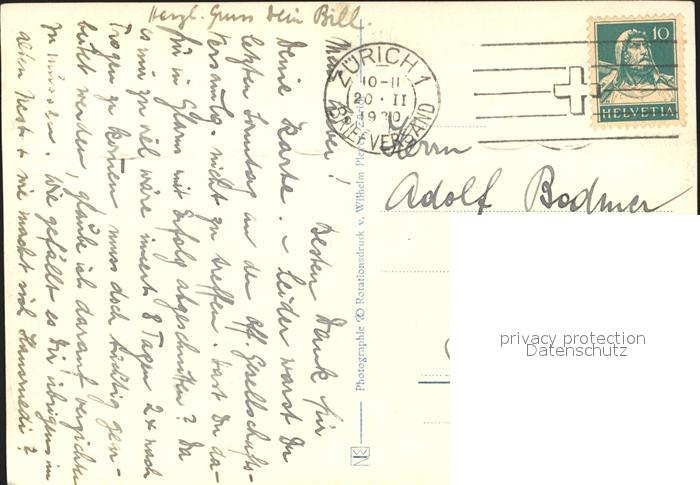 Herzl. Gruss Dein Bill.
Mein Lieber!
Besten Dank für
Deine Karte. – Leider warst Du
letzten Sonntag an der Off. Gesellschafts-
Versamlg. nicht zu treffen. Hast Du da-
für in Glarus mit Erfolg abgeschnitten? Da
es mir zu viel wäre innert 8 Tagen 2 x nach
Trogen zu kommen muss doch tüchtig gear-
beitet werden, glaube ich darauf verzichten
zu müssen. Wie gefällt es Dir übrigens im
alten Nest & wie macht sich Hansruedi?
Photographie & Rotationsdruck v. Wilhelm Pleyer, Zürich
ZÜRICH 1
10-11
20·II
1930
BRIEFVERSAND
10
HELVETIA
Herrn
Adolf Bodmer
privacy protection
Datenschutz